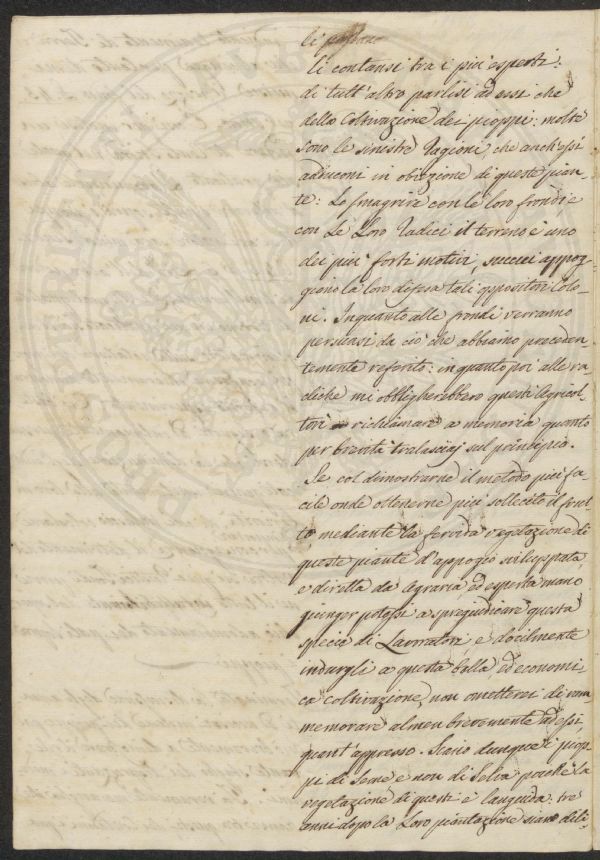 li contansi tra i più esperti:
di tutt'altro parlisi ad essi che
della Coltivazione dei pioppi: molte
sono le sinistre ragioni, che anch'essi
adducono in obiezione di queste pian-
te: Lo smagrire con le loro frondi e
con Le Loro radici il terreno è uno
dei più forti motivi, su cui appog-
giono la loro difesa tali oppositori Colo-
ni. Inquanto alle frondi verranno
persuasi da ciò che abbiamo preceden-
temente referito: inquanto poi alle ra-
diche mi obbligherebbero questi Agricol-
tori a richiamare a memoria quanto
per brevità tralasciaj sul principio.
Se col dimostrarne il metodo più fa-
cile onde ottenerne più sollecito il frut-
to, mediante la fervida vegetazione di
queste piante d'appogio sviluppata,
e diretta da Agraria ed esperta mano
giunger potessi a spregiudicare questa
specie di Lavoratori, e docilmente
indurgli a questa bella ed economi-
ca coltivazione, non ometterei di ram-
memorare almen brevemente ad essi,
quant'appresso. Siano dunque i piop-
pi di Seme e non di Selva poichè la
vegetazione di questi è languida: tre
anni dopo la Loro piantazione siano dili-